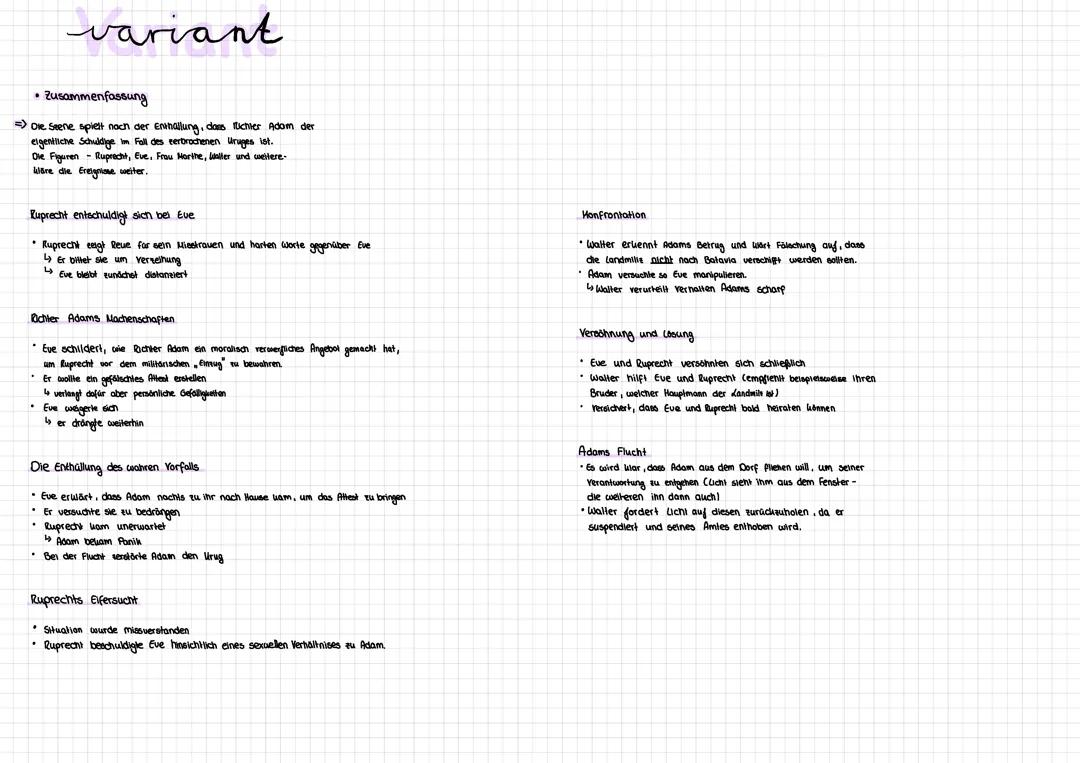 Variant
• Zusammenfassung
=> Die Szene spielt nach der Enthüllung, dass Richter Adam der
eigentliche Schuldige im Fall des zerbrochenen Kruges ist.
Die Figuren - Ruprecht, Eve, Frau Marthe, Walter und weitere-
kläre die Ereignisse weiter.
Ruprecht entschuldigt sich bei Eve
• Ruprecht zeigt Reue für sein Misstrauen und harten Worte gegenüber Eve
↳ Er bittet sie um Verzeihung
↳ Eve bleibt zunächst distanziert
Richter Adams Machenschaften
• Eve schildert, wie Richter Adam ein moralisch verwerfliches Angebot gemacht hat,
um Ruprecht vor dem militärischen „Einzug" zu bewahren.
• Er wollte ein gefälschtes Attest erstellen
↳ verlangt dafür aber persönliche Gefälligkeiten
• Eve weigerte sich
↳ er drängte weiterhin
Die Enthüllung des wahren Vorfalls
• Eve erklärt, dass Adam nachts zu ihr nach Hause kam, um das Attest zu bringen
• Er versuchte sie zu bedrängen
• Ruprecht kam unerwartet
↳ Adam bekam Panik
• Bei der Flucht zerstörte Adam den Krug
Ruprechts Eifersucht
• Situation wurde missverstanden
• Ruprecht beschuldigte Eve hinsichtlich eines sexuellen Verhältnises zu Adam.
Konfrontation
• Walter erkennt Adams Betrug und klärt Fälschung auf, dass
die Landmiliz nicht nach Batavia verschifft werden sollten.
• Adam versuchte so Eve manipulieren.
↳ Walter verurteilt Verhalten Adams scharf
Versöhnung und Lösung
• Eve und Ruprecht versöhnten sich schließlich
• Walter hilft Eve und Ruprecht (empfiehlt beispielsweise ihren
Bruder, welcher Hauptmann der Landmiliz ist)
• Versichert, dass Eve und Ruprecht bald heiraten können
Adams Flucht
• Es wird klar, dass Adam aus dem Dorf fliehen will, um seiner
Verantwortung zu entgehen (Licht sieht ihm aus dem Fenster -
die weiteren ihn dann auch)
• Walter fordert Licht auf diesen zurückzuholen, da er
suspendiert und seines Amtes enthoben wird.